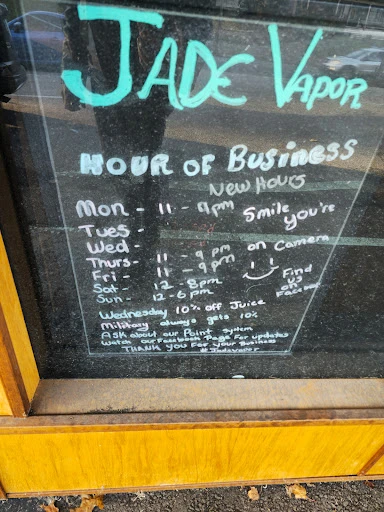 JADE VAPOR
HOUR OF BUSINESS
NEW HOURS
Mon - 11 - 9pm
Tues -
Wed -
Thurs - 11 - 9pm
Fri - 11 - 9pm
Sat - 12 - 8pm
Sun - 12 - 6pm
Smile you're
on Camera
Find
us
on
Facebook
Wednesday 10% off Juice
Military always gets 10%
Ask about our Point System
Watch our Facebook Page for updates
THANK YOU For Your Business
#Jadevapor